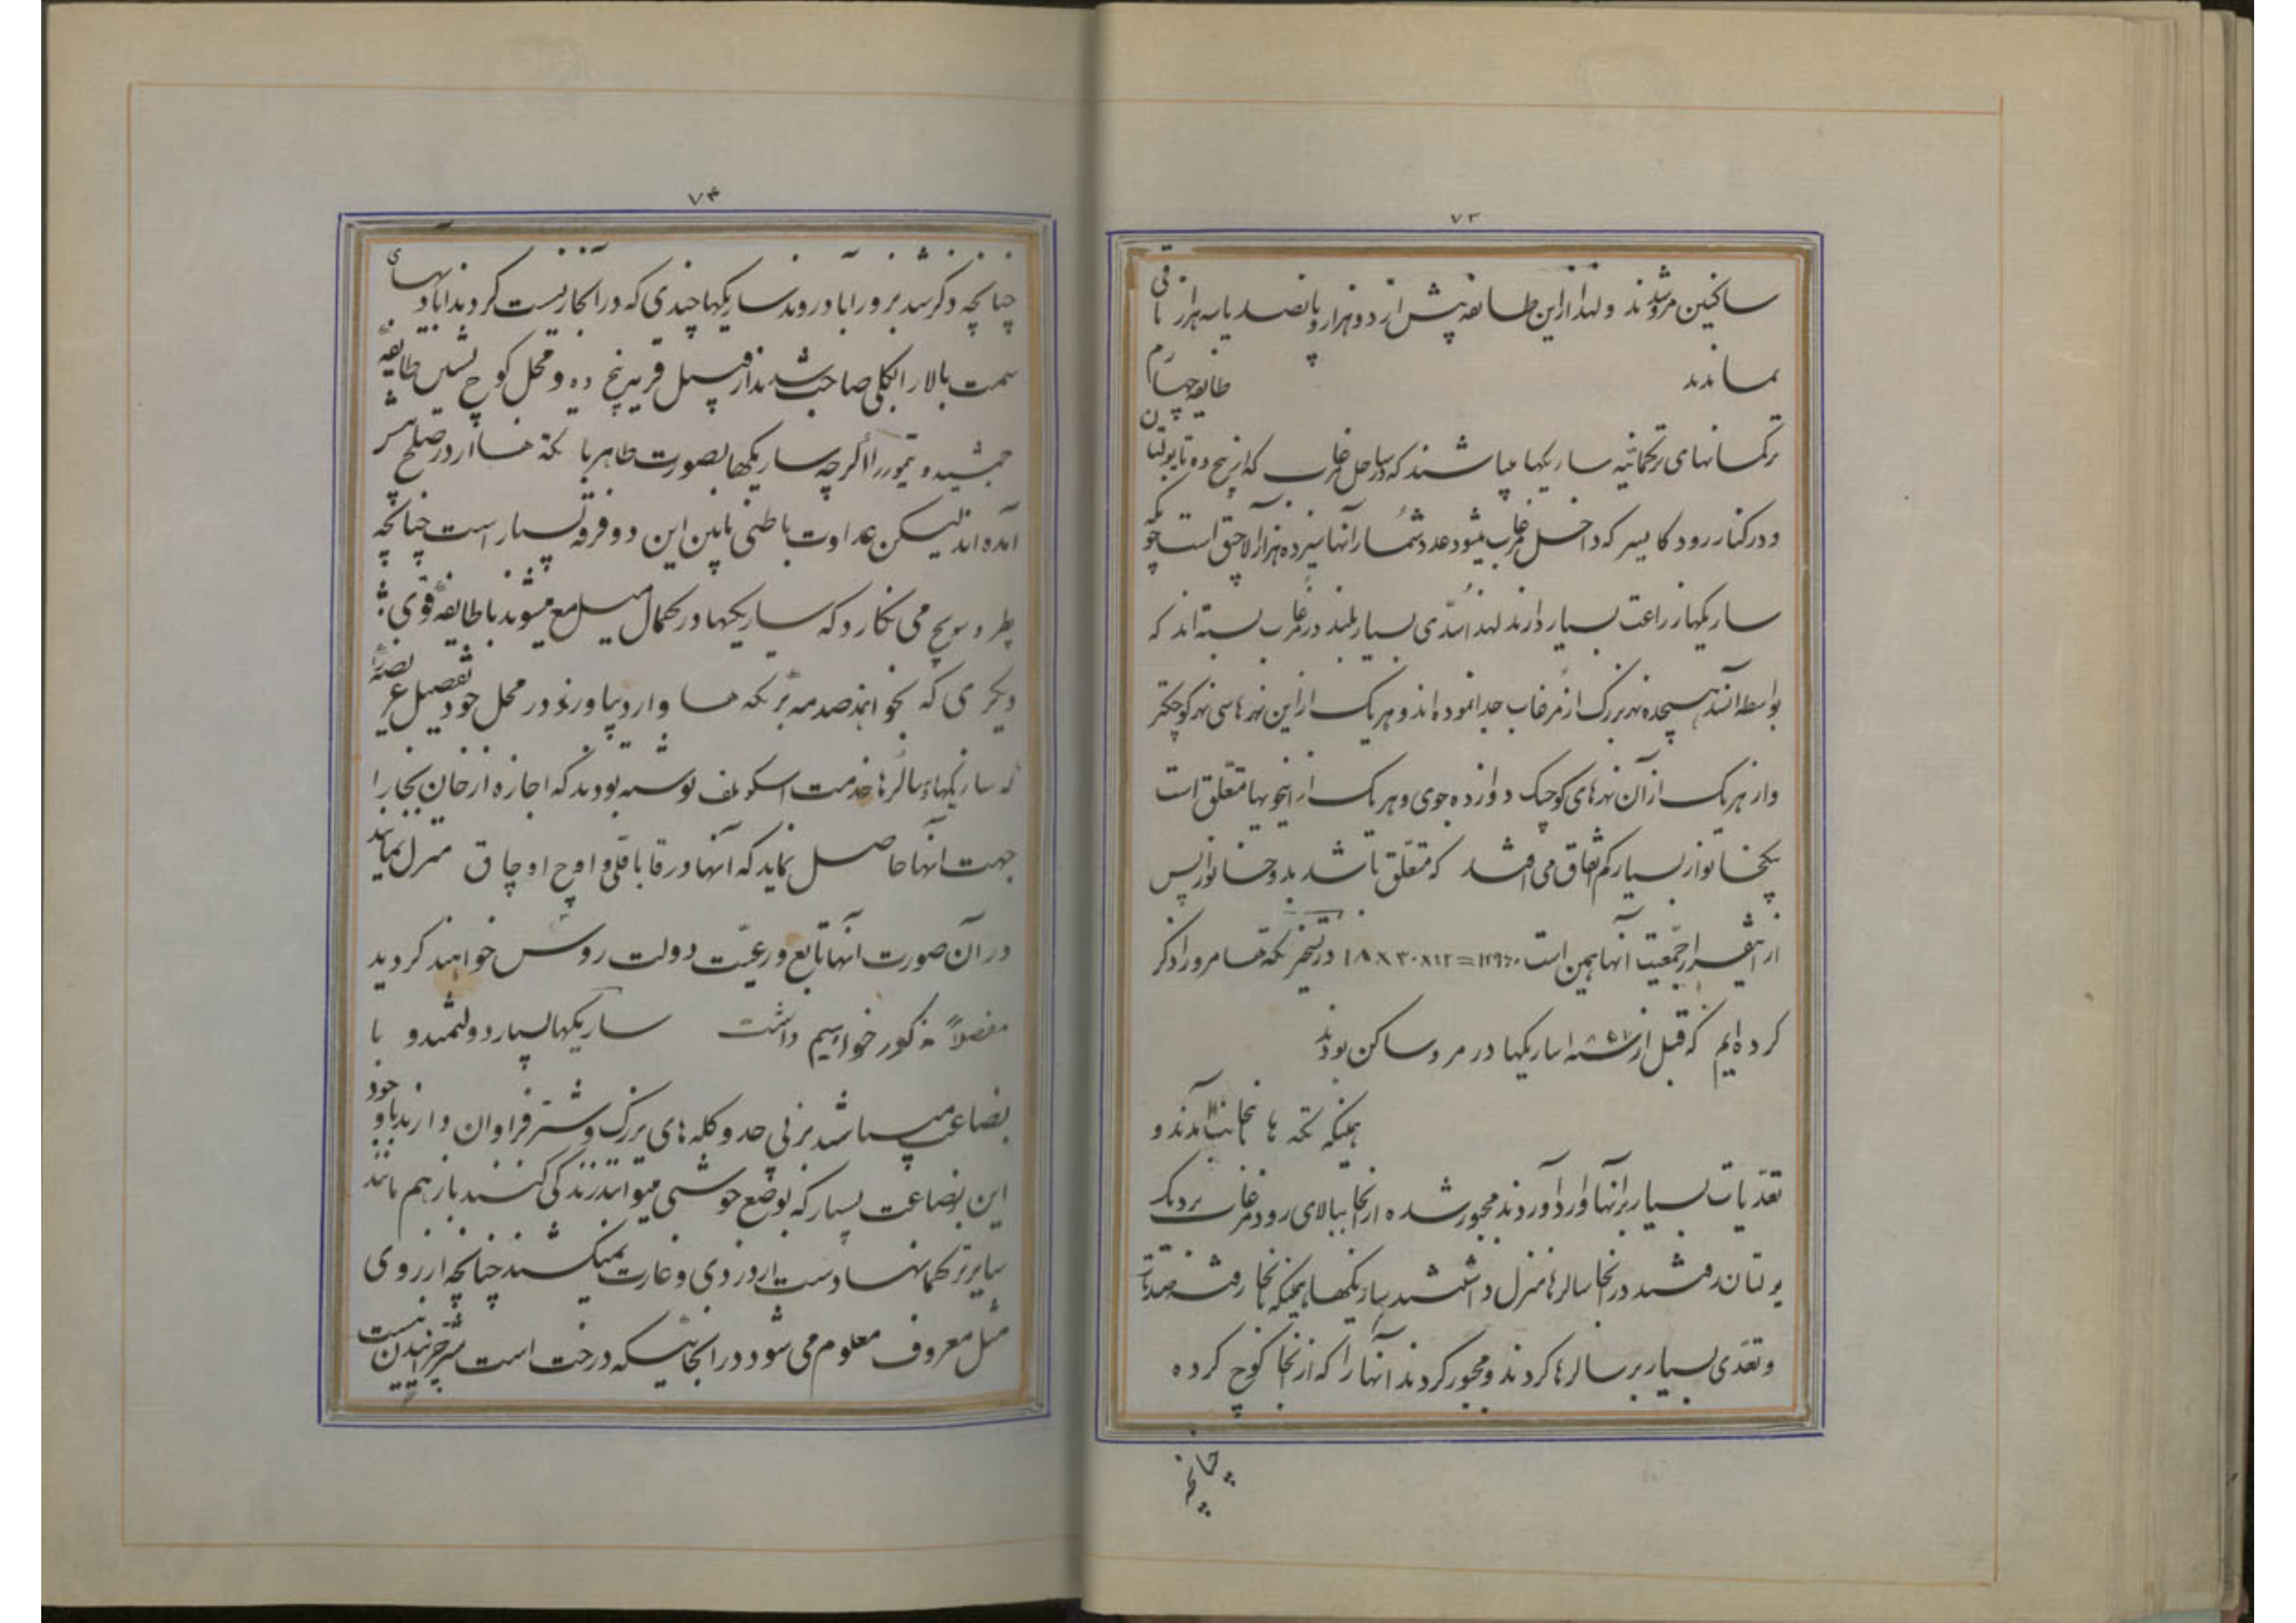 ۷۳
ساکنین مرو شدند و لهذا از این طایفه پیش از دو هزار و پانصد یا سه هزار باقی
نماندند طایفه چهارم
ترکمانهای ترکمانیه ساریکها میباشند که در ساحل مرغاب که از پنج ده تا یولتان
و در کنار رود کایسر که داخل مرغاب میشود عدد شمار آنها سیزده هزار آلاچق است چونکه
ساریکها زراعت بسیار دارند لهذا سدی بسیار بلند در مرغاب بسته اند که
بواسطه آن سد هیجده نهر بزرک از مرغاب جدا نموده اند و هر یک از این نهرها سی نهر کوچکتر
و از هر یک از آن نهرهای کوچک دوازده جوی و هر یک از اینجویها متعلق است
بیکخانوار بسیار کم اتفاق می افتد که متعلق باشد بدو خانوار پس
از اینقرار جمعیت آنها همین است ۱۲۹۶۰=۱۸×۳۰×۱۲ در تسخیر تکه ها مرو را ذکر
کرده ایم که قبل از ساریکها در مرو ساکن بودند
همینکه تکه ها بآنجا آمدند و
تعدیات بسیار بر آنها وارد آوردند مجبور شده از آنجا ببالای رود مرغاب نزدیک
یولتان رفتند در آنجا سالرها منزل داشتند ساریکها همینکه بآنجا رفتند صدمات
و تعدی بسیار بر سالرها کردند و مجبور کردند آنها را که از آنجا کوچ کرده
چنانچه
۷۴
چنانچه ذکر شد بزورآباد روند ساریکها چندی که در آنجا زیست کردند آبادیهای
سمت بالا را بالکلی صاحب شدند از قبیل قریه پنج ده و محل کوچ نشین طایفه
جمشیدی و تیموری را اگرچه ساریکها بصورت ظاهر با تکه ها از در صلح
آمده اند لیکن عداوت باطنی مابین این دو فرقه بسیار است چنانچه
پطروسویچ می نکارد که ساریکها در کمال میل جمع میشوند با طایفه قوی
دیکری که بخواهند صدمه بر تکه ها وارد بیاورند در محل خود تفصیل عریضه را
که ساریکها و سالرها خدمت اسکوبلف نوشته بودند که اجازه از خان بخارا
جهت آنها حاصل نماید که آنها در قاباقلی و اوچ اوچاق منزل نمایند
در آن صورت آنها تابع و رعیت دولت روس خواهند کردید
مفصلاً مذکور خواهیم داشت ساریکها بسیار دولتمند و با
بضاعت میباشند بزنی حد و کله های بزرک و شتر فراوان دارند با وجود
این بضاعت بسیار که بوضع خوشی میتوانند زندکی کنند باز هم مانند
سایر ترکمانها دست از دزدی و غارت نمیکشند چنانچه از روی
مثل معروف معلوم می شود در آنجائیکه درخت است شتر چرانیدن نیست